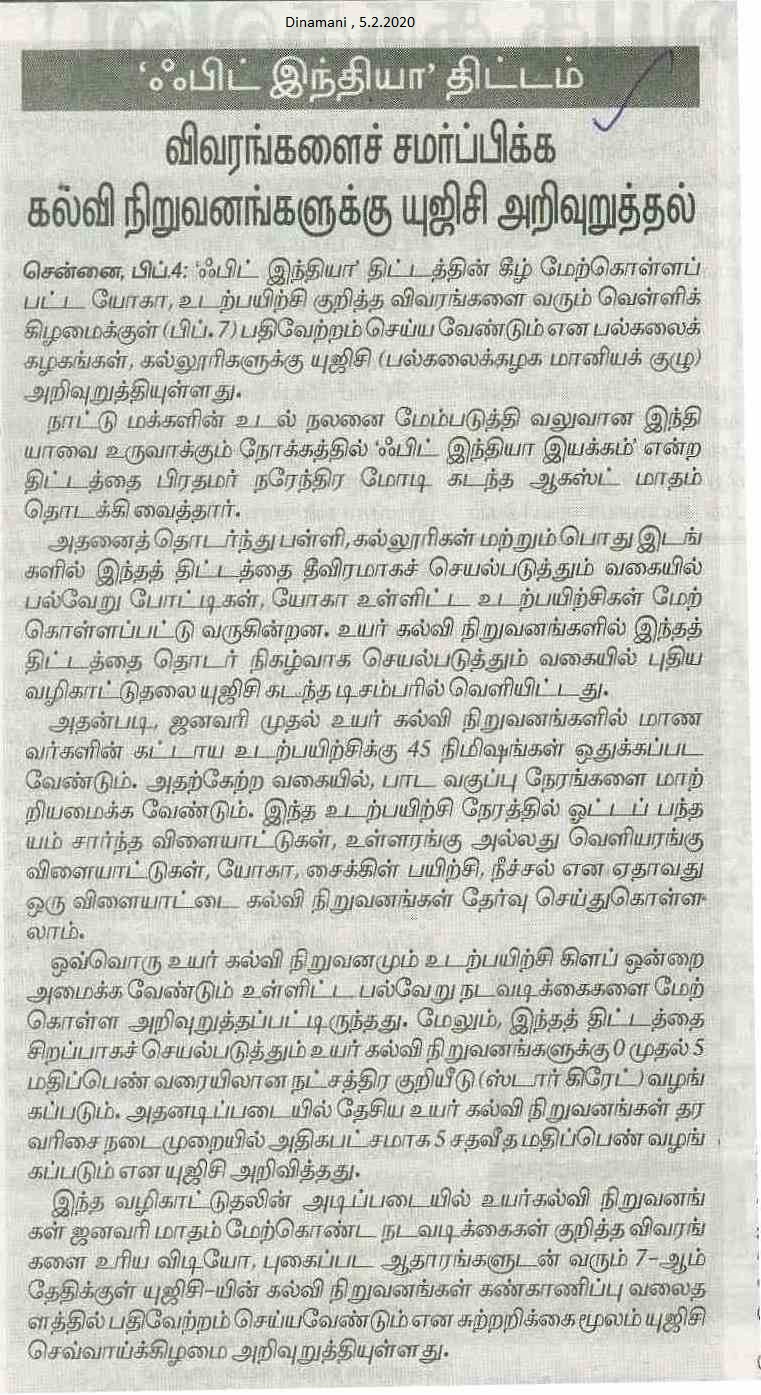 Dinamani , 5.2.2020
‘ஃபிட் இந்தியா’ திட்டம்
விவரங்களைச் சமர்ப்பிக்க
கல்வி நிறுவனங்களுக்கு யுஜிசி அறிவுறுத்தல்
சென்னை, பிப்.4: ‘ஃபிட் இந்தியா’ திட்டத்தின் கீழ் மேற்கொள்ளப்
பட்ட யோகா, உடற்பயிற்சி குறித்த விவரங்களை வரும் வெள்ளிக்
கிழமைக்குள் (பிப். 7) பதிவேற்றம் செய்ய வேண்டும் என பல்கலைக்
கழகங்கள், கல்லூரிகளுக்கு யுஜிசி (பல்கலைக்கழக மானியக் குழு)
அறிவுறுத்தியுள்ளது.
நாட்டு மக்களின் உடல் நலனை மேம்படுத்தி வலுவான இந்தி
யாவை உருவாக்கும் நோக்கத்தில் ‘ஃபிட் இந்தியா இயக்கம்’ என்ற
திட்டத்தை பிரதமர் நரேந்திர மோடி கடந்த ஆகஸ்ட் மாதம்
தொடக்கி வைத்தார்.
அதனைத் தொடர்ந்து பள்ளி, கல்லூரிகள் மற்றும் பொது இடங்
களில் இந்தத் திட்டத்தை தீவிரமாகச் செயல்படுத்தும் வகையில்
பல்வேறு போட்டிகள், யோகா உள்ளிட்ட உடற்பயிற்சிகள் மேற்
கொள்ளப்பட்டு வருகின்றன. உயர் கல்வி நிறுவனங்களில் இந்தத்
திட்டத்தை தொடர் நிகழ்வாக செயல்படுத்தும் வகையில் புதிய
வழிகாட்டுதலை யுஜிசி கடந்த டிசம்பரில் வெளியிட்டது.
அதன்படி, ஜனவரி முதல் உயர் கல்வி நிறுவனங்களில் மாண
வர்களின் கட்டாய உடற்பயிற்சிக்கு 45 நிமிஷங்கள் ஒதுக்கப்பட
வேண்டும். அதற்கேற்ற வகையில், பாட வகுப்பு நேரங்களை மாற்
றியமைக்க வேண்டும். இந்த உடற்பயிற்சி நேரத்தில் ஓட்டப் பந்த
யம் சார்ந்த விளையாட்டுகள், உள்ளரங்கு அல்லது வெளியரங்கு
விளையாட்டுகள், யோகா, சைக்கிள் பயிற்சி, நீச்சல் என ஏதாவது
ஒரு விளையாட்டை கல்வி நிறுவனங்கள் தேர்வு செய்துகொள்ள
லாம்.
ஒவ்வொரு உயர் கல்வி நிறுவனமும் உடற்பயிற்சி கிளப் ஒன்றை
அமைக்க வேண்டும் உள்ளிட்ட பல்வேறு நடவடிக்கைகளை மேற்
கொள்ள அறிவுறுத்தப்பட்டிருந்தது. மேலும், இந்தத் திட்டத்தை
சிறப்பாகச் செயல்படுத்தும் உயர் கல்வி நிறுவனங்களுக்கு 0 முதல் 5
மதிப்பெண் வரையிலான நட்சத்திர குறியீடு (ஸ்டார் கிரேட்) வழங்
கப்படும். அதனடிப்படையில் தேசிய உயர் கல்வி நிறுவனங்கள் தர
வரிசை நடைமுறையில் அதிகபட்சமாக 5 சதவீத மதிப்பெண் வழங்
கப்படும் என யுஜிசி அறிவித்தது.
இந்த வழிகாட்டுதலின் அடிப்படையில் உயர்கல்வி நிறுவனங்
கள் ஜனவரி மாதம் மேற்கொண்ட நடவடிக்கைகள் குறித்த விவரங்
களை உரிய விடியோ, புகைப்பட ஆதாரங்களுடன் வரும் 7-ஆம்
தேதிக்குள் யுஜிசி-யின் கல்வி நிறுவனங்கள் கண்காணிப்பு வலைத
ளத்தில் பதிவேற்றம் செய்யவேண்டும் என சுற்றறிக்கை மூலம் யுஜிசி
செவ்வாய்க்கிழமை அறிவுறுத்தியுள்ளது.